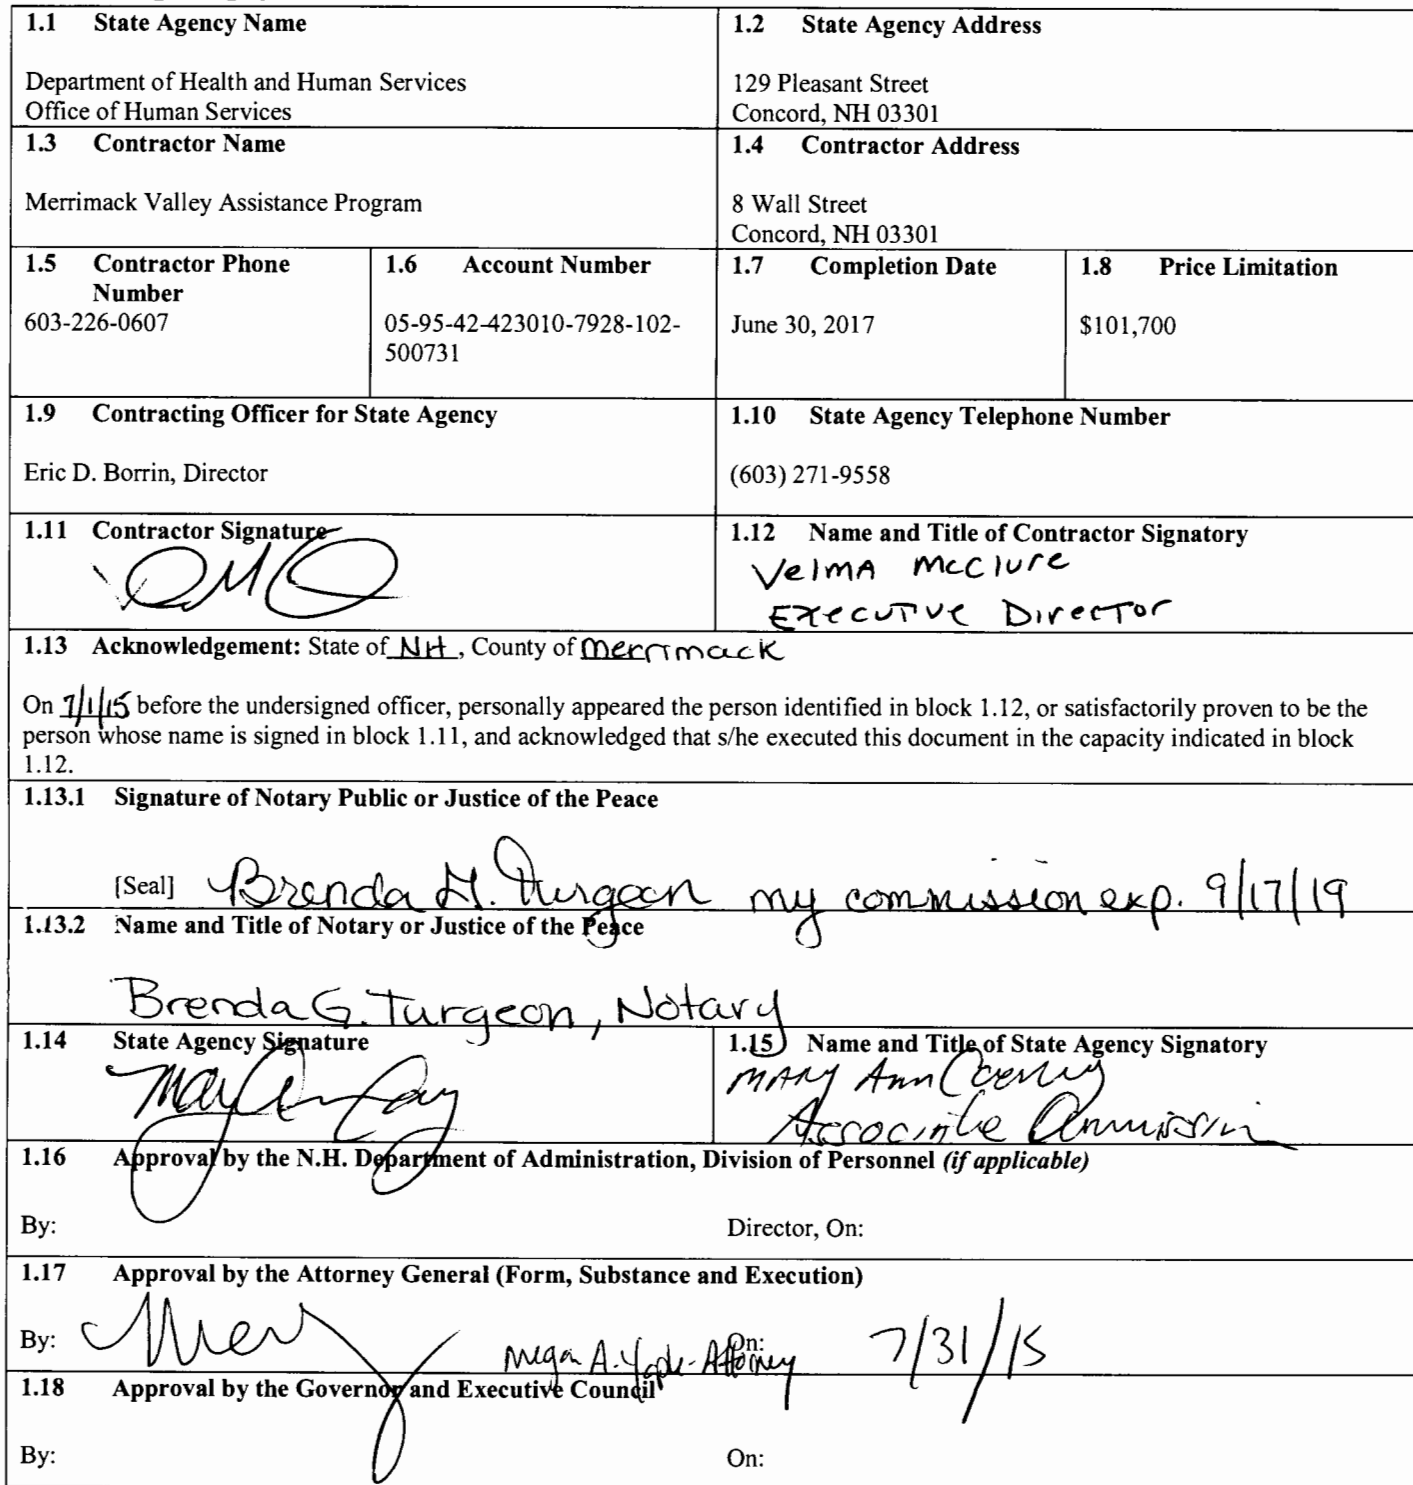 1.1 State Agency Name
Department of Health and Human Services
Office of Human Services
1.2 State Agency Address
129 Pleasant Street
Concord, NH 03301
1.3 Contractor Name
Merrimack Valley Assistance Program
1.4 Contractor Address
8 Wall Street
Concord, NH 03301
1.5 Contractor Phone
Number
603-226-0607
1.6 Account Number
05-95-42-423010-7928-102-
500731
1.7 Completion Date
June 30, 2017
1.8 Price Limitation
$101,700
1.9 Contracting Officer for State Agency
Eric D. Borrin, Director
1.10 State Agency Telephone Number
(603) 271-9558
1.11 Contractor Signature
1.12 Name and Title of Contractor Signatory
Velma McClure
Executive Director
1.13 Acknowledgement: State of NH, County of Merrimack
On 7/1/15 before the undersigned officer, personally appeared the person identified in block 1.12, or satisfactorily proven to be the
person whose name is signed in block 1.11, and acknowledged that s/he executed this document in the capacity indicated in block
1.12.
1.13.1 Signature of Notary Public or Justice of the Peace
[Seal] Brenda G. Turgeon my commission exp. 9/17/19
1.13.2 Name and Title of Notary or Justice of the Peace
Brenda G. Turgeon, Notary
1.14 State Agency Signature
1.15 Name and Title of State Agency Signatory
Mary Ann Cooney
Associate
1.16 Approval by the N.H. Department of Administration, Division of Personnel (if applicable)
By: Director, On:
1.17 Approval by the Attorney General (Form, Substance and Execution)
By: Megan A. Yaple-Attorney On: 7/31/15
1.18 Approval by the Governor and Executive Council
By: On: